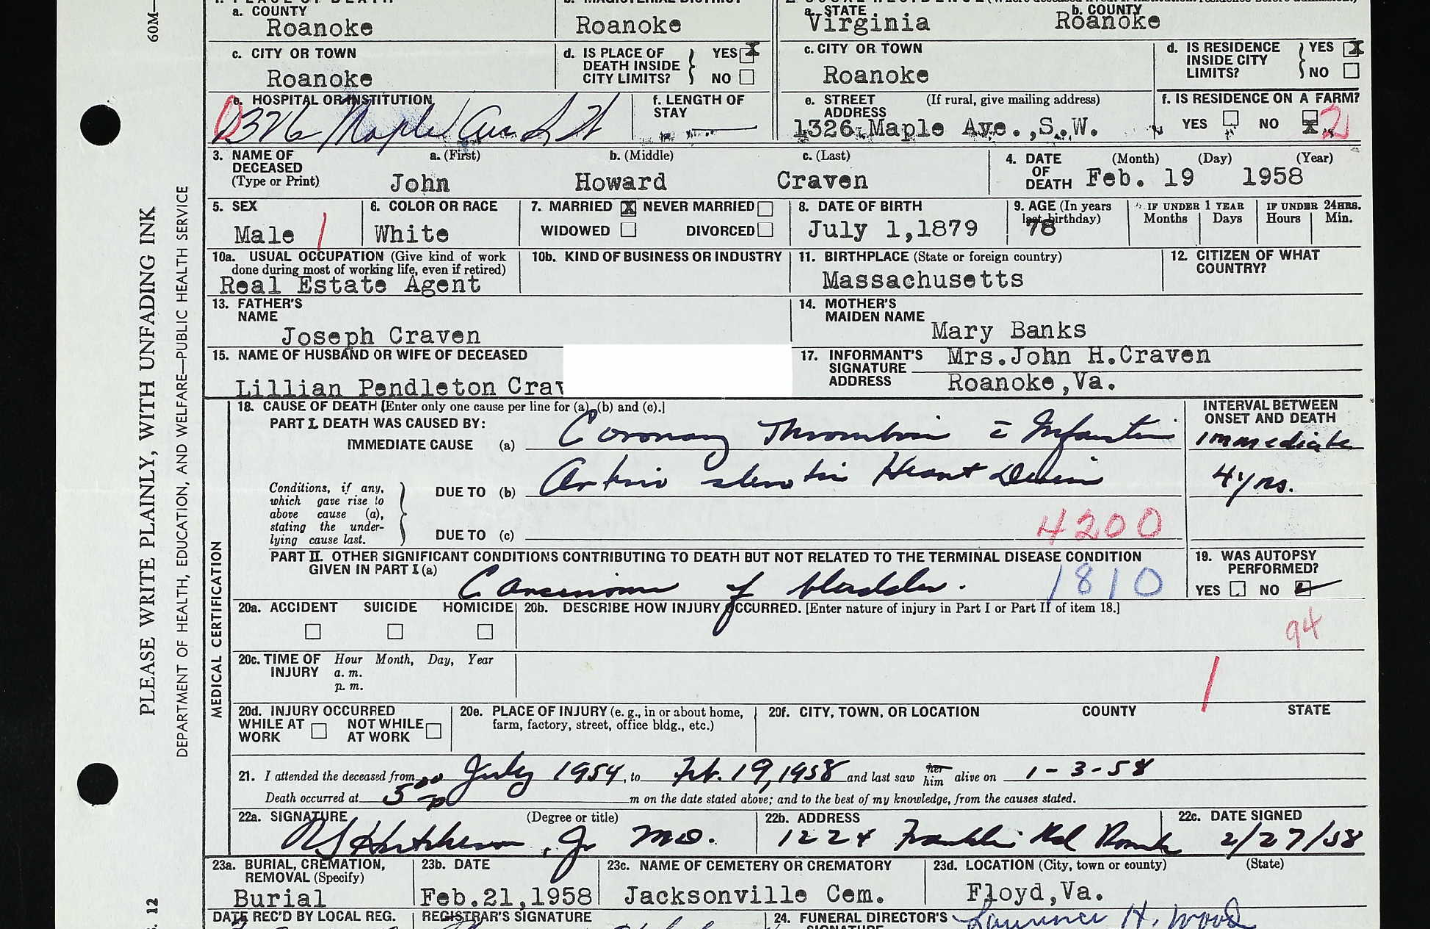 60M—
a. COUNTY
Roanoke
Roanoke
a. STATE
Virginia
b. COUNTY
Roanoke
c. CITY OR TOWN
Roanoke
d. IS PLACE OF DEATH INSIDE CITY LIMITS?
YES X
NO
c. CITY OR TOWN
Roanoke
d. IS RESIDENCE INSIDE CITY LIMITS?
YES X
NO
e. HOSPITAL OR INSTITUTION
1326 Maple Ave
f. LENGTH OF STAY
e. STREET ADDRESS (If rural, give mailing address)
1326 Maple Ave.,S.W.
f. IS RESIDENCE ON A FARM?
YES NO X 2
3. NAME OF DECEASED (Type or Print)
a. (First) b. (Middle) c. (Last)
John Howard Craven
4. DATE OF DEATH (Month) (Day) (Year)
Feb. 19 1958
5. SEX
Male 1
6. COLOR OR RACE
White
7. MARRIED X NEVER MARRIED
WIDOWED DIVORCED
8. DATE OF BIRTH
July 1,1879
9. AGE (In years last birthday)
78
IF UNDER 1 YEAR
Months Days
IF UNDER 24 HRS.
Hours Min.
10a. USUAL OCCUPATION (Give kind of work done during most of working life, even if retired)
Real Estate Agent
10b. KIND OF BUSINESS OR INDUSTRY
11. BIRTHPLACE (State or foreign country)
Massachusetts
12. CITIZEN OF WHAT COUNTRY?
13. FATHER'S NAME
Joseph Craven
14. MOTHER'S MAIDEN NAME
Mary Banks
15. NAME OF HUSBAND OR WIFE OF DECEASED
Lillian Pendleton Crav
17. INFORMANT'S SIGNATURE Mrs.John H.Craven
ADDRESS Roanoke,Va.
MEDICAL CERTIFICATION
18. CAUSE OF DEATH [Enter only one cause per line for (a), (b) and (c).]
PART I. DEATH WAS CAUSED BY:
INTERVAL BETWEEN ONSET AND DEATH
IMMEDIATE CAUSE (a) Coronary Thrombosis c̄ Infarction
immediate
Conditions, if any, which gave rise to above cause (a), stating the underlying cause last.
DUE TO (b) Arterio sclerotic Heart Disease
4 yrs.
DUE TO (c)
4200
PART II. OTHER SIGNIFICANT CONDITIONS CONTRIBUTING TO DEATH BUT NOT RELATED TO THE TERMINAL DISEASE CONDITION GIVEN IN PART I (a)
Carcinoma of bladder. 1810
19. WAS AUTOPSY PERFORMED?
YES NO
20a. ACCIDENT SUICIDE HOMICIDE
20b. DESCRIBE HOW INJURY OCCURRED. [Enter nature of injury in Part I or Part II of item 18.]
94
20c. TIME OF INJURY Hour Month, Day, Year
a. m.
p. m.
1
20d. INJURY OCCURRED
WHILE AT WORK NOT WHILE AT WORK
20e. PLACE OF INJURY (e. g., in or about home, farm, factory, street, office bldg., etc.)
20f. CITY, TOWN, OR LOCATION COUNTY STATE
21. I attended the deceased from July 1954, to Feb. 19, 1958 and last saw her him alive on 1-3-58
Death occurred at 5 00 p m on the date stated above; and to the best of my knowledge, from the causes stated.
22a. SIGNATURE (Degree or title)
Jr MD.
22b. ADDRESS
1224 Franklin Rd Roanoke
22c. DATE SIGNED
2/27/58
23a. BURIAL, CREMATION, REMOVAL (Specify)
Burial
23b. DATE
Feb.21,1958
23c. NAME OF CEMETERY OR CREMATORY
Jacksonville Cem.
23d. LOCATION (City, town or county) (State)
Floyd,Va.
DATE REC'D BY LOCAL REG.
REGISTRAR'S SIGNATURE
24. FUNERAL DIRECTOR'S
Lawrence H. Wood
PLEASE WRITE PLAINLY, WITH UNFADING INK
DEPARTMENT OF HEALTH, EDUCATION, AND WELFARE—PUBLIC HEALTH SERVICE
12